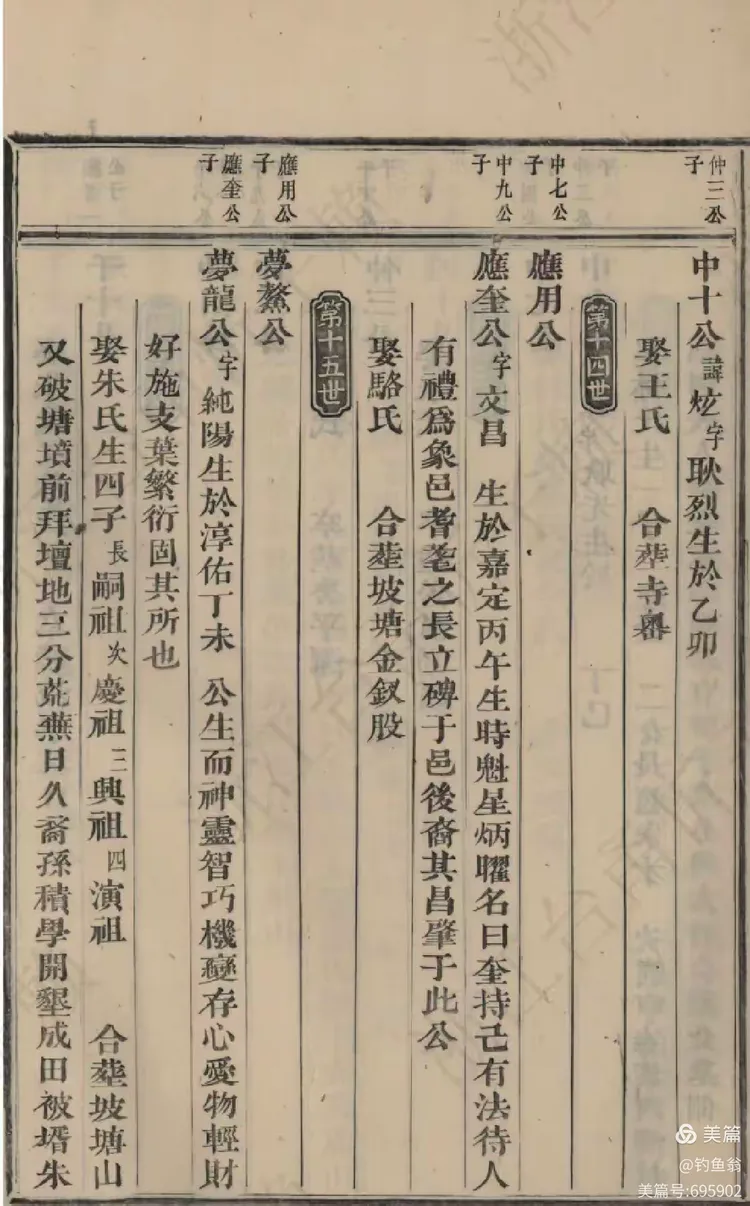 仲三公子
中十公諱炫字耿烈生於乙卯
娶王氏 合塟寺𡺥
第十四世
中七公子
應用公
中九公子
應奎公字文昌 生於嘉定丙午生時魁星炳曜名曰奎持己有法待人
有禮爲象邑耆耄之長立碑于邑後裔其昌肇于此公
娶駱氏 合塟坡塘金釵股
第十五世
應用公子
夢鰲公
應奎公子
夢龍公字純陽生於淳佑丁未 公生而神靈智巧機變存心愛物輕財
好施支葉繁衍固其所也
娶朱氏生四子長嗣祖次慶祖三興祖四演祖 合塟坡塘山
又破塘墳前拜壇地三分荒蕪日久裔孫積學開墾成田被壻朱
美篇
@钓鱼翁
美篇号:695902